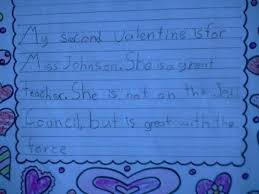 My second valentine is for
Miss Johnson. She is a great
teacher. She is not on the Jedi
Council, but is great with the
force